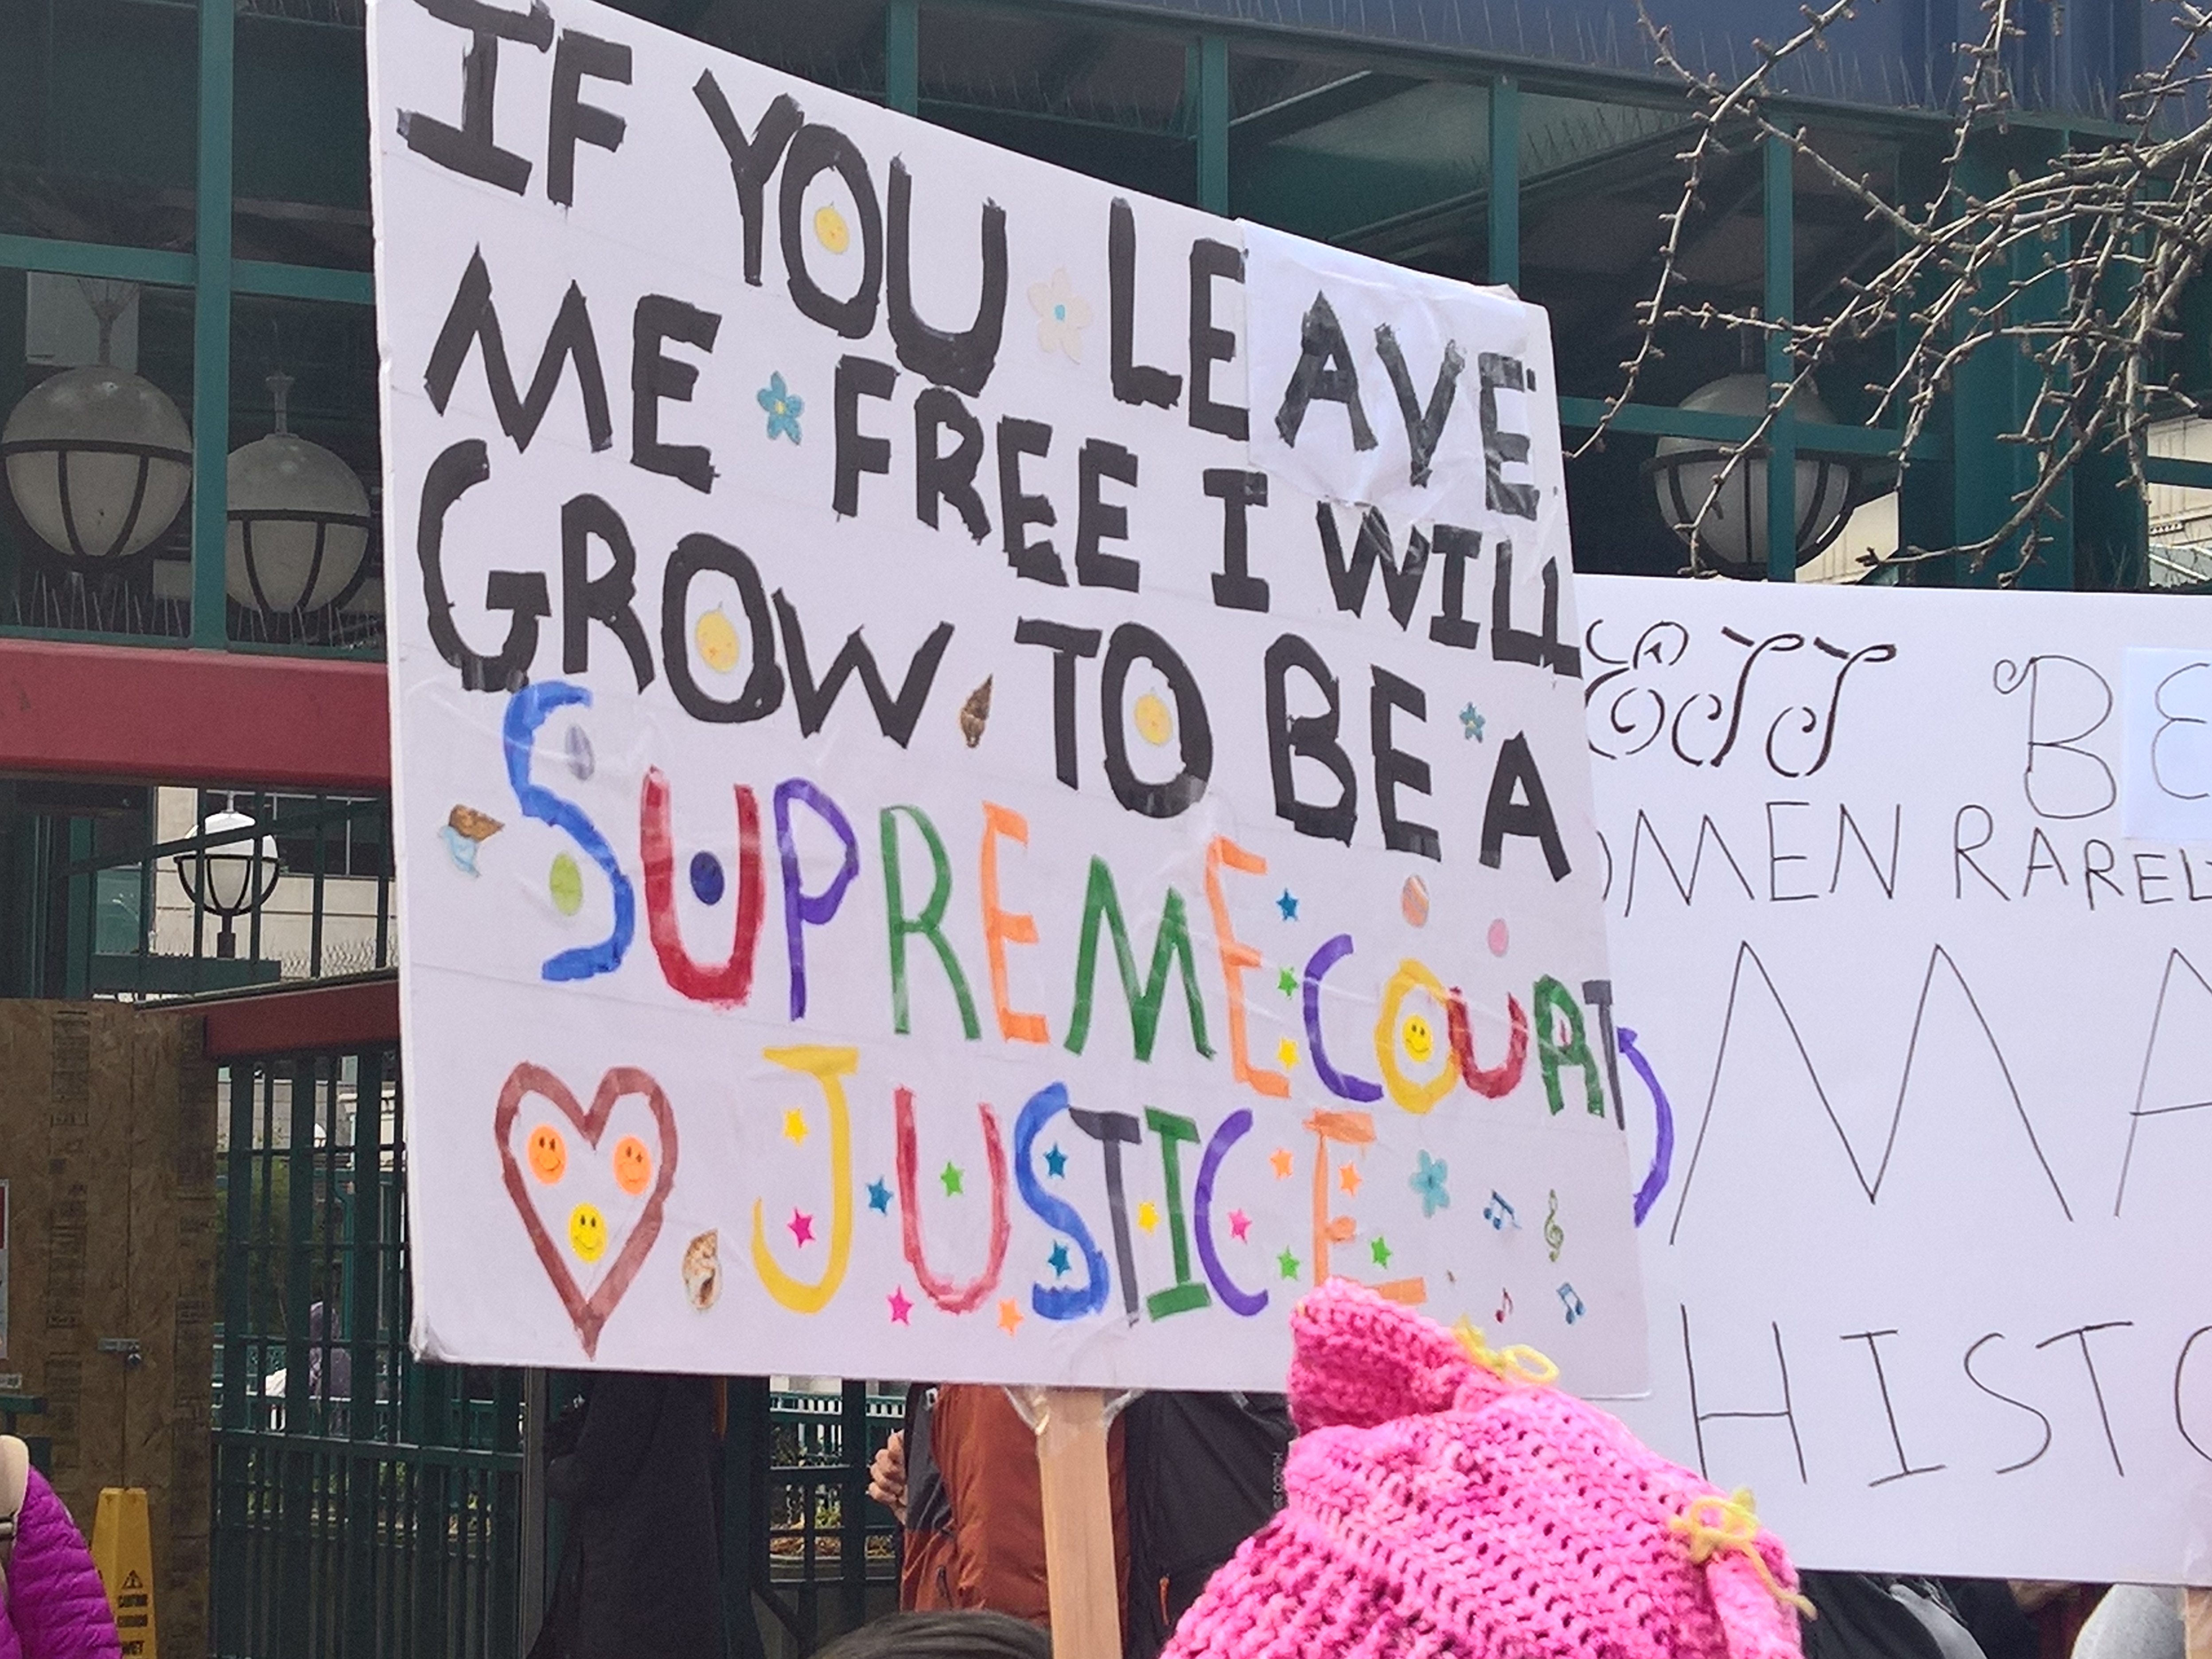 IF YOU LEAVE
ME FREE I WILL
GROW TO BE A
SUPREME COURT
JUSTICE
BE
OMEN RARELY
MA
HISTO
CAUTION
WET